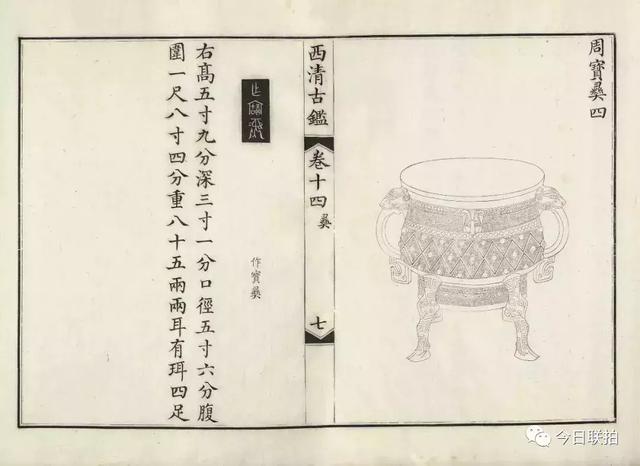 周寶彝四
西清古鑑
卷十四
彝
七
作寶彝
作寶彝
右高五寸九分深三寸一分口徑五寸六分腹
圍一尺八寸四分重八十五兩兩耳有珥四足
今日联拍